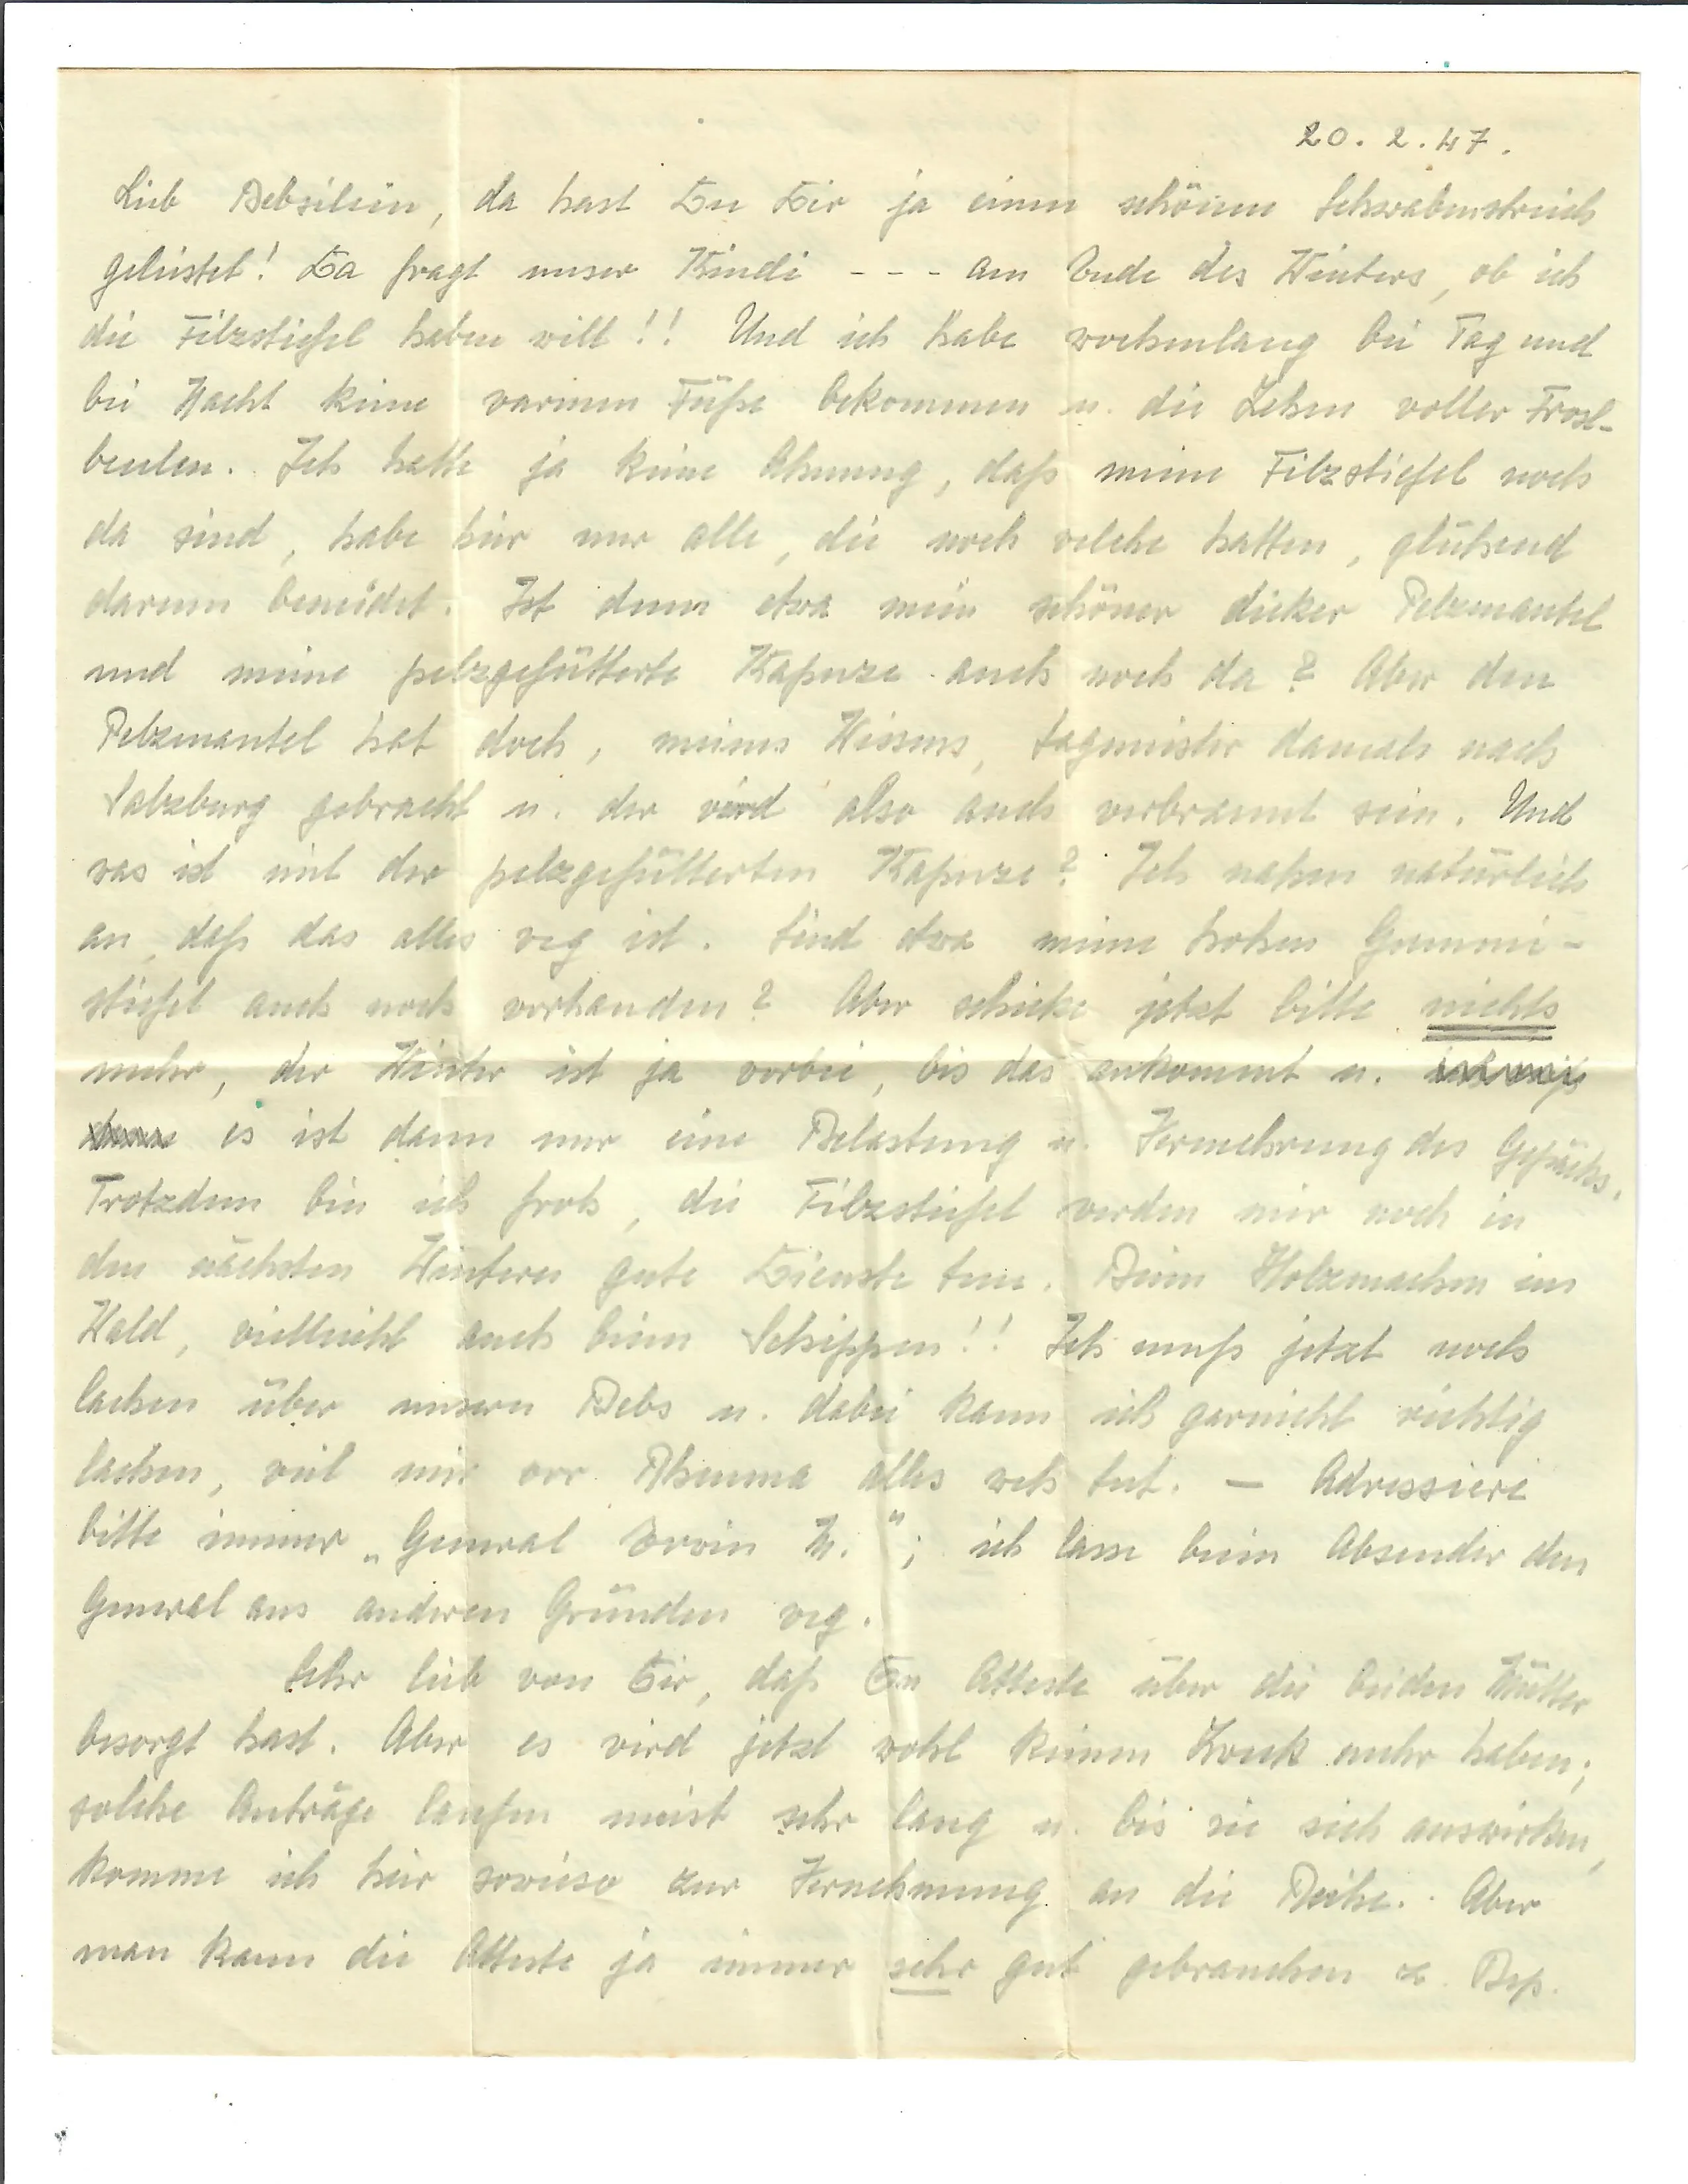 20. 2. 47.
Lieb Bebsilein, da hast Du Dir ja einen schönen Schwabenstreich
geleistet! Da fragt unser Kindi - - - am Ende des Winters, ob ich
die Filzstiefel haben will!! Und ich habe wochenlang bei Tag und
bei Nacht keine warmen Füße bekommen u. die Zehen voller Frost-
beulen. Ich hatte ja keine Ahnung, daß meine Filzstiefel noch
da sind, habe hier nur alle, die noch welche hatten, glühend
darum beneidet. Ist denn etwa mein schöner dicker Pelzmantel
und meine pelzgefütterte Kapuze auch noch da? Aber den
Pelzmantel hat doch, meines Wissens, damals nach
Salzburg gebracht u. der wird also auch verbrannt sein. Und
was ist mit der pelzgefütterten Kapuze? Ich nahm natürlich
an, daß das alles weg ist. Sind etwa meine hohen Gummi-
stiefel auch noch vorhanden? Aber schicke jetzt bitte nichts
mehr, der Winter ist ja vorbei, bis das ankommt u.
es ist dann nur eine Belastung u. Vermehrung des Gepäcks.
Trotzdem bin ich froh, die Filzstiefel werden mir noch in
den nächsten Wintern gute Dienste tun. Beim Holzmachen im
Wald, vielleicht auch beim Schippen!! Ich muß jetzt noch
lachen über unsern Bebs u. dabei kann ich garnicht richtig
lachen, weil mir vor Rheuma alles weh tut. — Adressiere
bitte immer „General Erwin"; ich lasse beim Absender den
General aus anderen Gründen weg.
Sehr lieb von Dir, daß Du Atteste über die beiden Mütter
besorgt hast. Aber es wird jetzt wohl keinen Zweck mehr haben;
solche Anträge laufen meist sehr lang u. bis sie sich auswirken,
komme ich hier sowieso zur Vernehmung an die Reihe. Aber
man kann die Atteste ja immer sehr gut gebrauchen